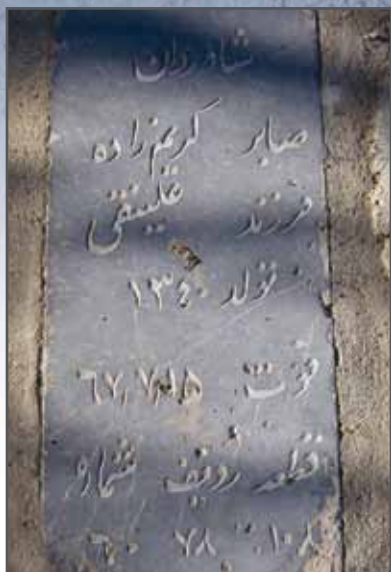 شادروان
صابر کریم‌زاده
فرزند علینقی
تولد ۱۳۴۰
فوت ۶۷٫۷٫۱۵
قطعه ردیف شماره
۱۰۸ ۷۸